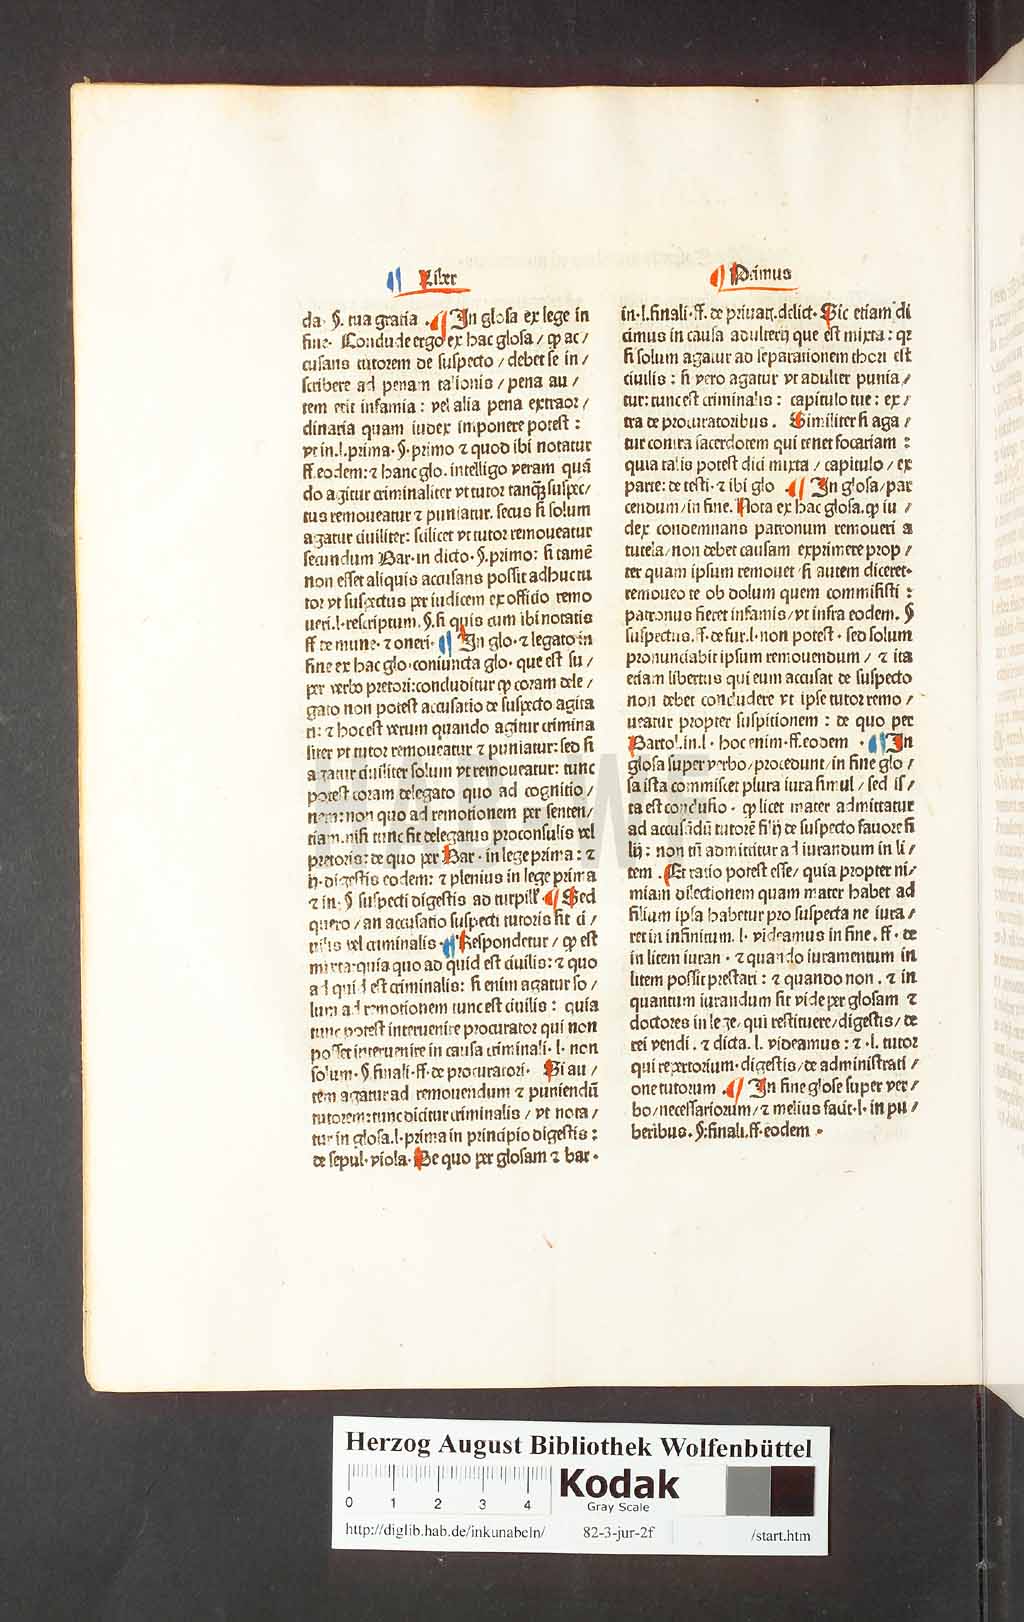 ¶ Liber
da· §. tua gratia ·¶ In glosa ex lege in
fine· Conclude ergo ex hac glosa / ꝙ ac/
cusans tutorem de suspecto / debet se in /
scribere ad penam talionis / pena au /
tem erit infamia : vel alia pena extraor /
dinaria quam iudex imponere potest :
vt in.l.prima·§·primo ⁊ quod ibi notatur
ff.eodem:⁊ hanc glo. intelligo veram quā
do agitur criminaliter vt tutor tanqȝ suspec/
tus remoueatur ⁊ puniatur. secus si solum
agatur ciuiliter: scilicet vt tutor remoueatur
secundum Bar·in dicto·§.primo: si tamē
non esset aliquis accusans possit adhuc tu
tor vt suspectus per iudicem ex officio remo
ueri.l·rescriptum.§.si quis cum ibi notatis
ff de mune·⁊ oneri·¶ In glo·⁊ legato in
fine ex hac glo·coniuncta glo· que est su /
per verbo pretori:concluditur ꝙ coram dele /
gato non potest accusatio de suspecto agita
ri: ⁊ hoc est verum quando agitur crimina
liter vt tutor remoueatur ⁊ puniatur: sed si
agatur ciuiliter solum vt remoueatur: tunc
potest coram delegato quo ad cognitio /
nem: non quo ad remotionem per senten/
tiam.nisi tunc sit delegatus proconsulis vel
pretoris: de quo per Bar·in lege prima: ⁊
ij·digestis eodem: ⁊ plenius in lege prima
⁊ in·§ suspecti digestis ad turpill·¶ Sed
quero / an accusatio suspecti tutoris sit ci /
uilis vel criminalis·¶ Respondetur / ꝙ est
mixta·quia quo ad quid est ciuilis: ⁊ quo
ad quid est criminalis: si enim agatur so /
lum ad remotionem tunc est ciuilis : quia
tunc potest interuenire procurator qui non
posset interuenire in causa criminali. l· non
solum·§ finali·ff·de procuratori· Si au /
tem agatur ad remouendum ⁊ puniendū
tutorem: tunc dicitur criminalis / vt nota /
tur in glosa.l·prima in principio digestis :
de sepul·viola· De quo per glosam ⁊ bar·
¶ Primus
in·l.finali·ff.de priuat.delict· Sic etiam di
cimus in causa adulterij que est mixta : qꝛ
si solum agatur ad separationem thori est
ciuilis : si vero agatur vt adulter punia /
tur: tunc est criminalis : capitulo tue : ex /
tra de procuratoribus . Similiter si aga /
tur contra sacerdotem qui tenet focariam :
quia talis potest dici mixta / capitulo / ex
parte: de testi·⁊ ibi glo ·¶ In glosa / par
cendum / in fine. Nota ex hac glosa.ꝙ iu /
dex condemnans patronum remoueri a
tutela / non debet causam exprimere prop /
ter quam ipsum remouet / si autem diceret·
remoueo te ob dolum quem commisisti :
patronus fieret infamis / vt infra eodem. §
suspectus.ff·de fur.l·non potest · sed solum
pronunciabit ipsum remouendum / ⁊ ita
etiam libertus qui eum accusat de suspecto
non debet concludere vt ipse tutor remo /
ueatur propter suspitionem : de quo per
Bartol.in.l· hoc enim·ff.eodem ·¶ In
glosa super verbo / procedunt / in fine glo /
sa ista commiscet plura iura simul / sed is /
ta est conclusio · ꝙ licet mater admittatur
ad accusādū tutorē filij de suspecto fauore fi
lij: non tn̄ admittitur ad iurandum in li /
tem . Et ratio potest esse / quia propter ni /
miam dilectionem quam mater habet ad
filium ipsa habetur pro suspecta ne iura /
ret in infinitum. l· videamus in fine. ff· de
in litem iuran · ⁊ quando iuramentum in
litem possit prestari : ⁊ quando non . ⁊ in
quantum iurandum sit vide per glosam ⁊
doctores in lege, qui restituere / digestis / de
rei vendi . ⁊ dicta. l. videamus : ⁊ ·l. tutor
qui repertorium·digestis / de administrati /
one tutorum ·¶ In fine glose super ver /
bo / necessariorum / ⁊ melius facit·l·in pu /
beribus.§:finali.ff·eodem ·
HAB-WF
Herzog August Bibliothek Wolfenbüttel
0 1 2 3 4
Kodak
Gray Scale
http://diglib.hab.de/inkunabeln/ 82-3-jur-2f /start.htm